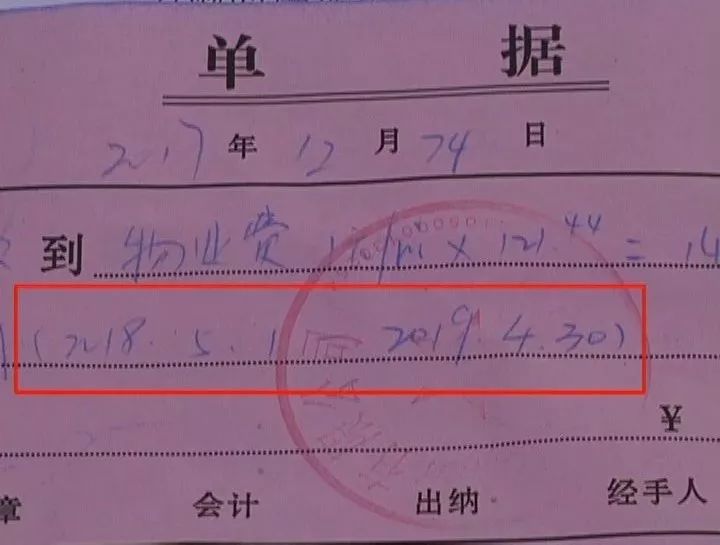 单 据
2017年12月24日
到 物业费 1元/m×121.44=14
(2018.5.1 2019.4.30)
¥
章 会计 出纳 经手人